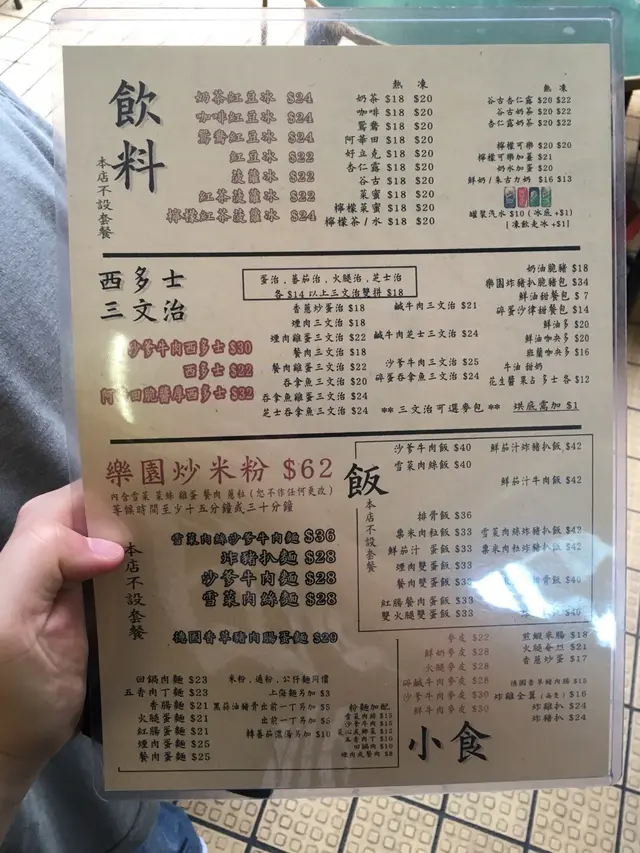 飲料
本店不設套餐
奶茶紅豆冰 $24
咖啡紅豆冰 $24
鴛鴦紅豆冰 $24
紅豆冰 $22
菠蘿冰 $22
紅茶菠蘿冰 $22
檸檬紅茶菠蘿冰 $24
熱 凍
奶茶 $18 $20
咖啡 $18 $20
鴛鴦 $18 $20
阿華田 $18 $20
好立克 $18 $20
杏仁露 $18 $20
谷古 $18 $20
菜蜜 $18 $20
檸檬菜蜜 $18 $20
檸檬茶/水 $18 $20
熱 凍
谷古杏仁露 $20 $22
谷古奶茶 $20 $22
杏仁露奶茶 $20 $22
檸檬可樂 $20 $20
檸檬可樂加薑 $21
奶水加蛋 $20
鮮奶/朱古力奶 $16 $13
罐裝汽水 $10 (冰底 +$1)
[凍飲走冰 +$1]
西多士
三文治
沙爹牛肉西多士 $30
西多士 $22
阿華田脆醬厚西多士 $32
蛋治，蕃茄治，火腿治，芝士治
各 $14 以上三文治雙拼 $18
香蔥炒蛋治 $18
煙肉三文治 $18
煙肉雞蛋三文治 $22
餐肉三文治 $18
餐肉雞蛋三文治 $22
吞拿魚三文治 $20
吞拿魚雞蛋三文治 $24
芝士吞拿魚三文治 $24
鹹牛肉三文治 $21
鹹牛肉芝士三文治 $24
沙爹牛肉三文治 $25
碎蛋吞拿魚三文治 $24
** 三文治可選麥包 ** 烘底需加 $1
奶油脆豬 $18
樂園炸豬扒脆豬包 $34
鮮油甜餐包 $ 7
碎蛋沙律甜餐包 $14
鮮油多 $20
鮮油咖央多 $20
班蘭咖央多 $16
牛油 甜奶
花生醬 果占 多士 各 $12
樂園炒米粉 $62
內含雪菜 菜絲 雞蛋 餐肉 蔥粒 (恕不作任何更改)
等候時間至少十五分鐘或三十分鐘
本店不設套餐
雪菜肉絲沙爹牛肉麵 $36
炸豬扒麵 $28
沙爹牛肉麵 $28
雪菜肉絲麵 $28
德國香草豬肉腸蛋麵 $20
回鍋肉麵 $23
五香肉丁麵 $23
香腸麵 $21
火腿蛋麵 $21
紅腸蛋麵 $21
煙肉蛋麵 $25
餐肉蛋麵 $25
米粉，通粉，公仔麵同價
上海麵另加 $3
黑蒜油豬骨出前一丁另加 $5
出前一丁另加 $5
轉蕃茄濃湯另加 $10
粉麵加配
雪菜肉絲 $15
沙爹牛肉 $15
五香肉丁 $10
回鍋肉 $10
煙肉或餐肉 $8
飯
本店不設套餐
沙爹牛肉飯 $40
雪菜肉絲飯 $40
排骨飯 $36
粟米肉粒飯 $33
鮮茄汁 蛋飯 $33
煙肉雙蛋飯 $33
餐肉雙蛋飯 $33
紅腸餐肉蛋飯 $33
雙火腿雙蛋飯 $33
鮮茄汁炸豬扒飯 $42
鮮茄汁牛肉飯 $42
雪菜肉絲炸豬扒飯 $42
粟米肉粒炸豬扒飯 $42
$40
$40
小食
麥皮 $22
鮮奶麥皮 $28
火腿麥皮 $28
碎鹹牛肉麥皮 $30
沙爹牛肉麥皮 $30
鮮牛肉麥皮 $30
煎蝦米腸 $18
火腿奄列 $21
香蔥炒蛋 $17
德國香草豬肉腸 $15
炸雞全翼 $16
炸雞扒 $24
炸豬扒 $24